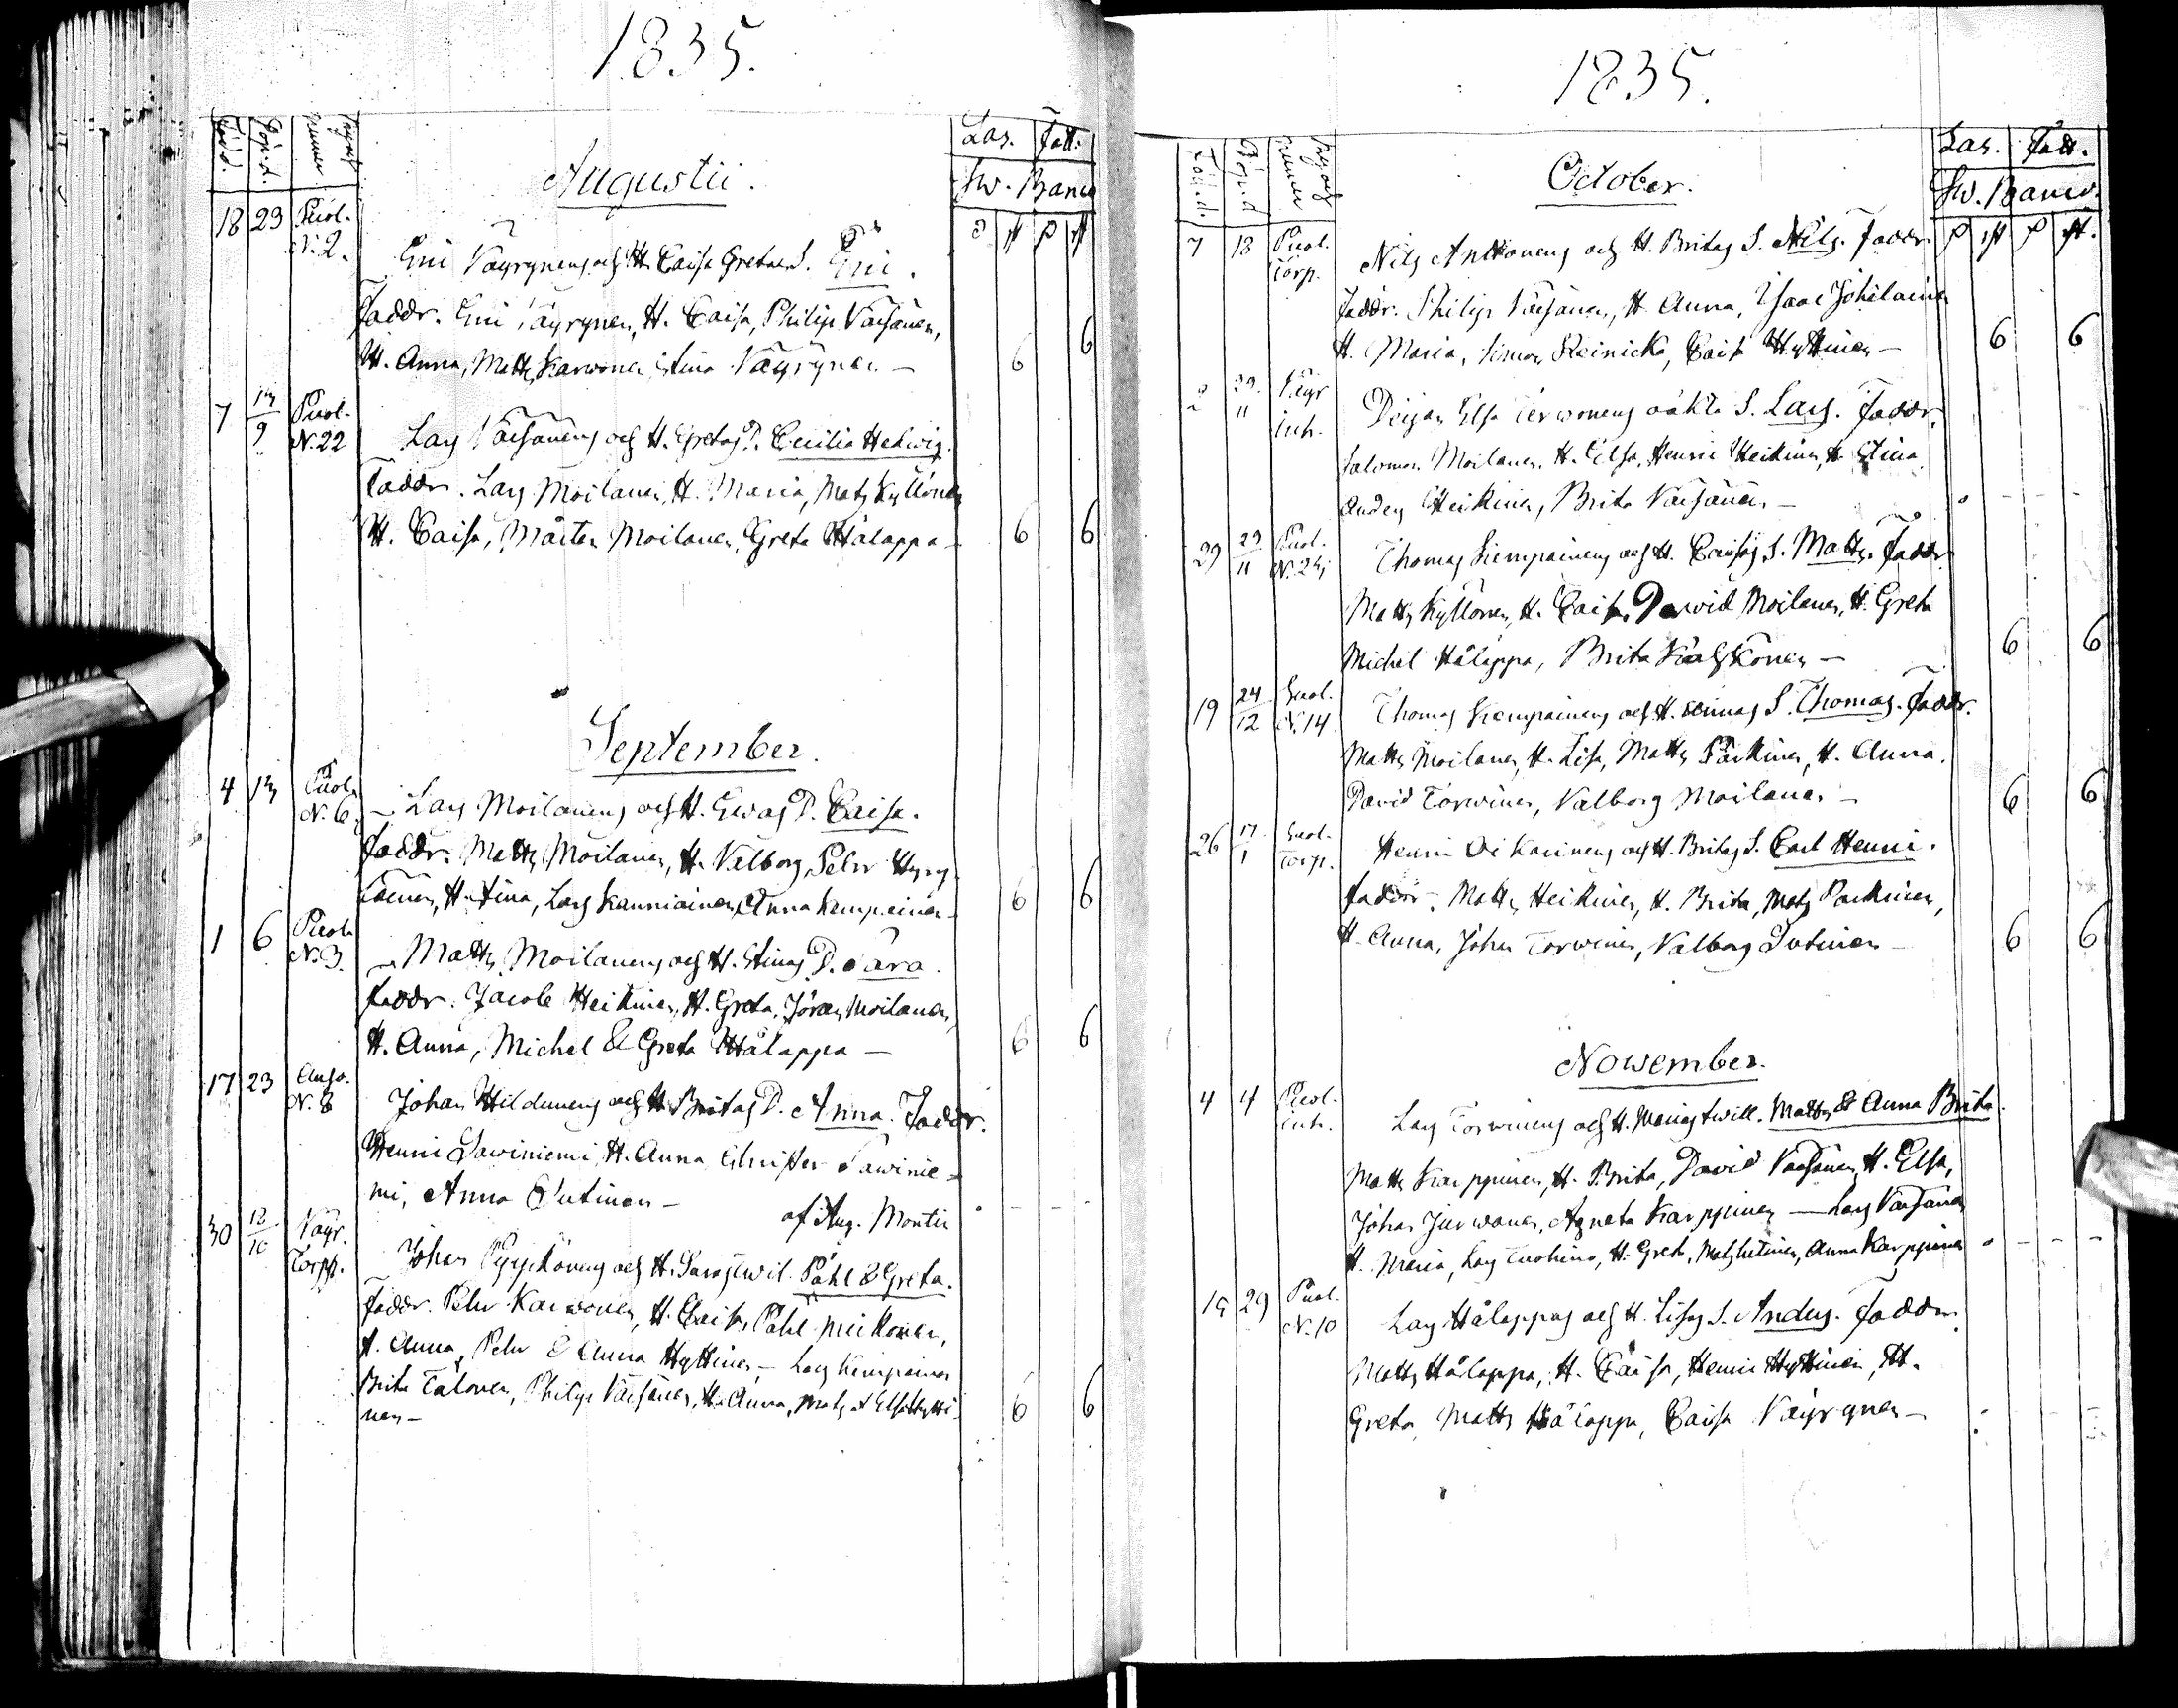 1835.
Föd. d.
Döp. d.
By och
numer
Las. Fatt.
Augustii.
Sw. Banco
18 29 Puol.
N. 2.
Eric Väyrynens och H. Caisa Gretas S. Eric.
Faddr. Eric Väyrynen, H. Caisa, Philip Väisänen,
H. Anna, Matts Karvonen, Stina Väyrynen — 6 6
7 9 Puol.
N. 22
Lars Väisänens och H. Gretas D. Cecilia Hedwig.
Faddr. Lars Moilanen, H. Maria, Mats Kyllönen
H. Caisa, Mårten Moilanen, Greta Hälappa — 6 6
September.
4 Puol.
N. 6.
Lars Moilanens och H. Ewas D. Caisa.
Faddr. Matts Moilanen, H. Valborg, Pehr Hyry
H. Stina, Lars Kanniainen, Anna Kempainen — 6 6
1 6 Puol.
N. 3.
Matts Moilanens och H. Stinas D. Sara.
Faddr. Jacob Heikinen, H. Greta, Jöran Moilanen,
H. Anna, Michel & Greta Hälappa — 6 6
17 23
N. 8
Johan Hildunens och H. Britas D. Anna. Faddr.
Henric Sawiniemi, H. Anna, Christer Sawinie-
mi, Anna Sutinen —
af Aug. Montin
30 12/10 Väyr.
Torpp.
Johan Pyykönens och H. Saras twil. Påhl & Greta.
Faddr. Pehr Karvonen, H. Caisa, Påhl
H. Anna, Pehr & Anna Hyttinen, — Lars Kempainen
Brita Talonen, Philip Väisänen, H. Anna, Mats & Elsa Hytti-
nen — 6 6
1835.
Föd. d.
Döp. d
By och
numer
Las. Fatt.
October.
Sw. Banco.
7 18 Puol.
Torp.
Nils Anttonens och H. Britas S. Nils. Faddr.
Faddr. Philip Väisänen, H. Anna, Isaac Jokelainen
H. Maria, Simon Reinicka, Caisa Hyttinen — 6 6
2 29/11 Väyr
inh.
Pigan Elsa Terwonens oäkta S. Lars. Faddr.
Salomon Moilanen, H. Elsa, Henric Heikinen, H. Stina
Anders Heikinen, Brita Väisänen —
29 29/11 Puol.
Thomas Kempainens och H. Caisas S. Matts. Faddr.
Matts Kyllönen, H. Caisa, David Moilanen, H. Greta
Michel Hälappa, Brita — 6 6
19 24/12 Puol.
N. 14
Thomas Kempainens och H. Annas S. Thomas. Faddr.
Matts Moilanen, H. Lisa, Matts Parkinen, H. Anna.
David Torwinen, Valborg Moilanen — 6 6
26 17/1 Puol.
Torp.
Henric Oikarinens och H. Britas S. Carl Henric.
Faddr. Matts Heikinen, H. Brita, Mats Parkinen,
H. Anna, Johan Torwinen, Valborg Sutinen — 6 6
November.
4 4 Puol.
inh.
Lars Torwinens och H. Marias twill. Matts & Anna Brita.
Matts Karppinen, H. Brita, David Väisänen, H. Elsa,
Johan Jurwanen, Agneta Karppinen — Lars Väisänen
H. Maria, Lars Tuohino, H. Greta, Anna Karppinen
29 Puol.
N. 10
Lars Hälappas och H. Lisas S. Anders. Faddr.
Matts Hälappa, H. Caisa, Henric Hyttinen, H.
Greta, Matts Hälappa, Caisa Väyrynen —